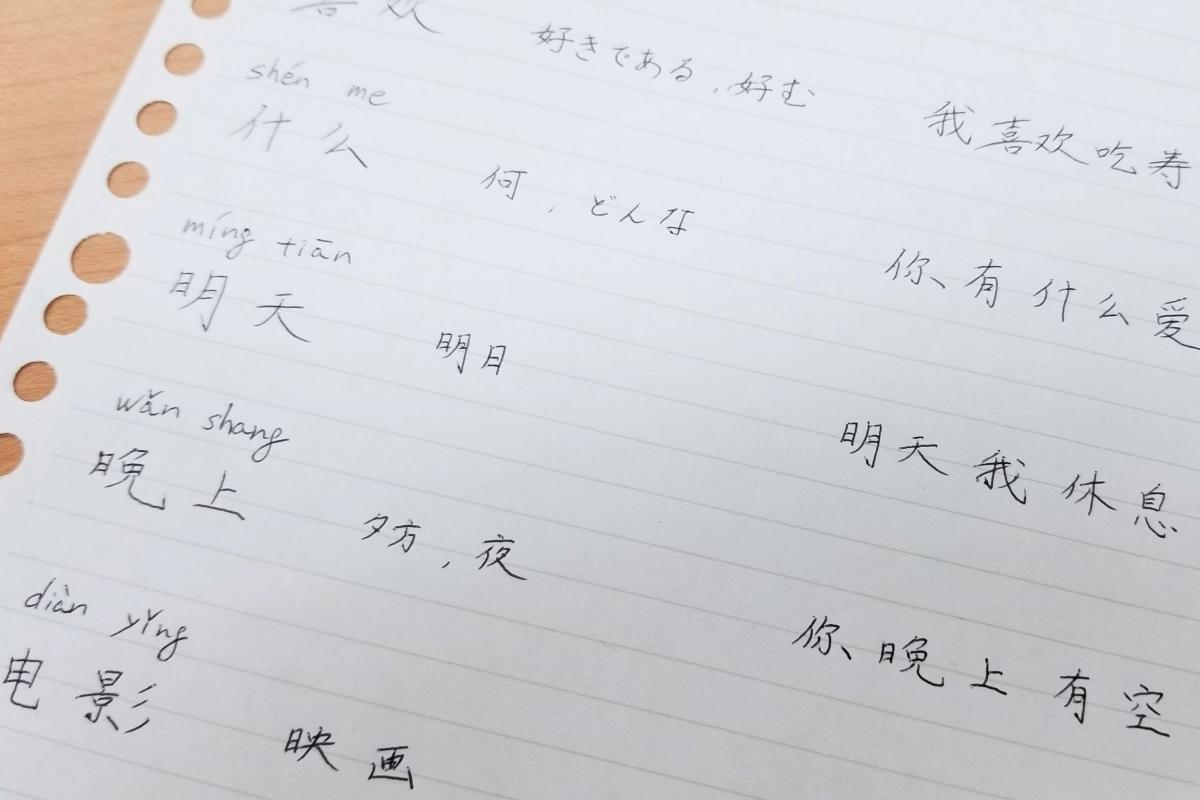 喜欢 好きである，好む 我喜欢吃寿
shén me
什么 何，どんな 你有什么爱
míng tiān
明天 明日 明天我休息
wǎn shang
晚上 夕方，夜 你晚上有空
diàn yǐng
电影 映画